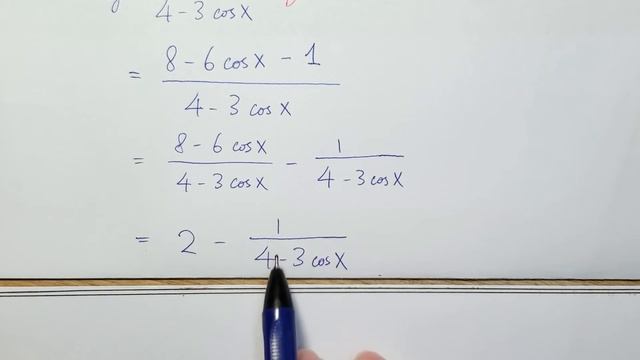 4 - 3 cosx
= 8 - 6 cosx - 1
4 - 3 cosx
= 8 - 6 cosx / 4 - 3 cosx - 1 / 4 - 3 cosx
= 2 - 1 / 4 - 3 cosx